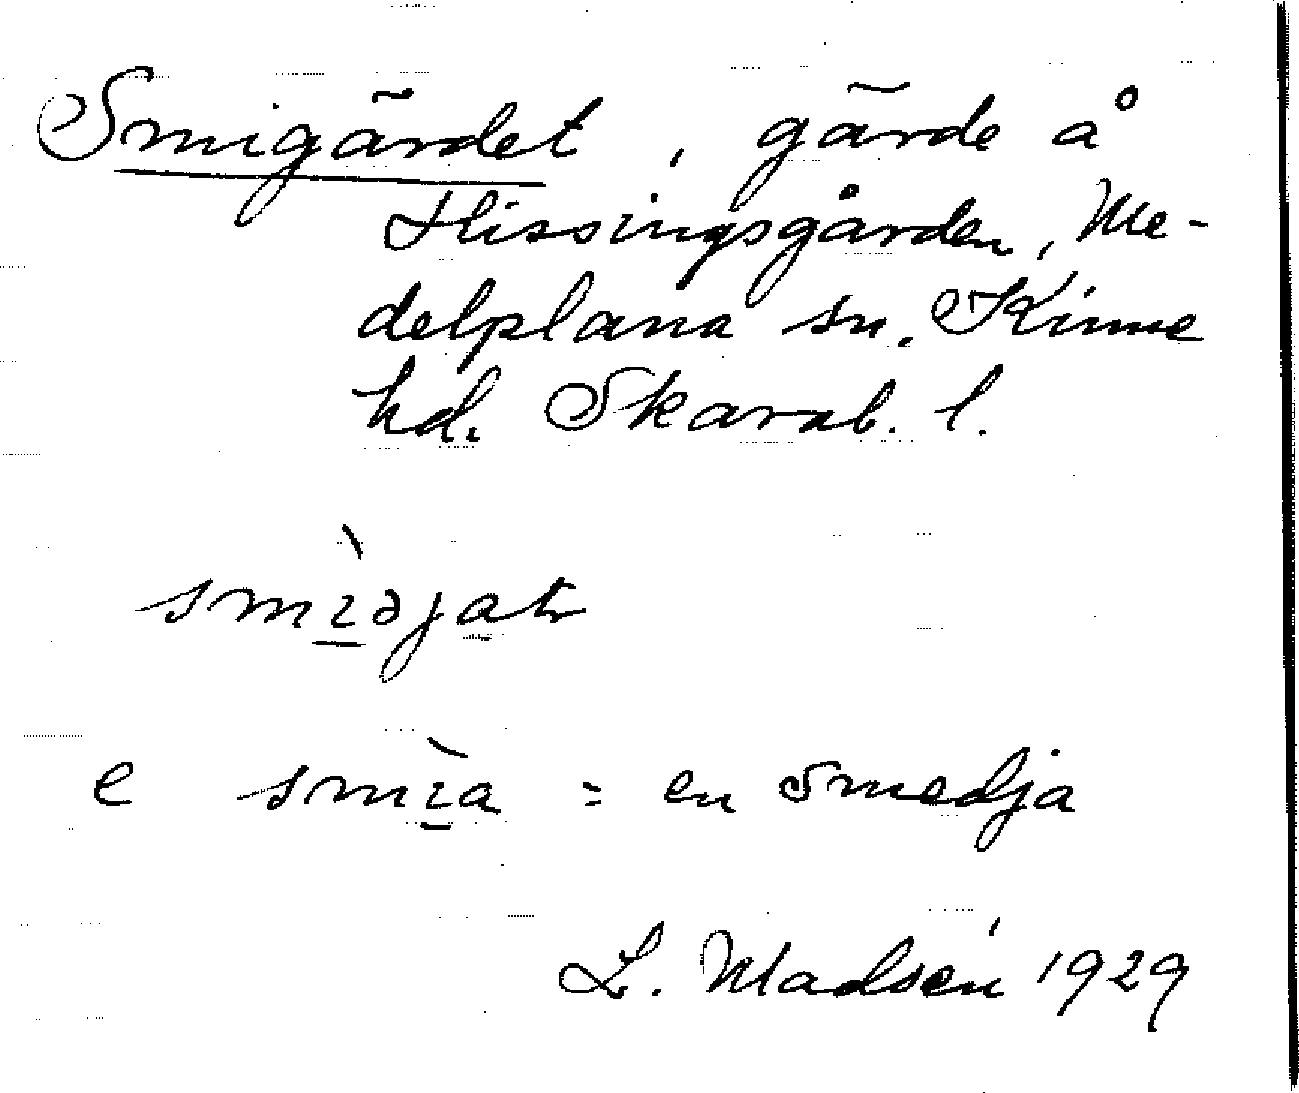 Smigärdet, gärde å
Hissingsgården, Me-
delplana sn. Kinne
hd. Skarab. l.
smìəjat
e smìa = en smedja
L. Madsén 1929